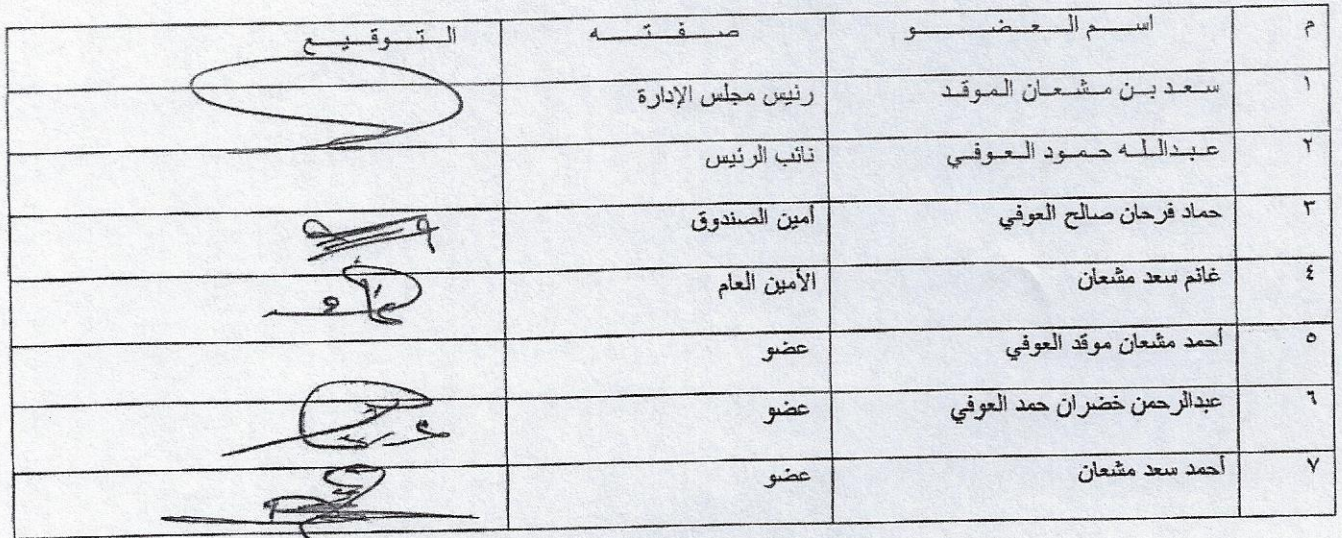 م اسم العضو صفته التوقيع
١ سعد بن مشعان الموقد رئيس مجلس الإدارة
٢ عبدالله حمود العوفي نائب الرئيس
٣ حماد فرحان صالح العوفي أمين الصندوق
٤ غانم سعد مشعان الأمين العام
٥ أحمد مشعان موقد العوفي عضو
٦ عبدالرحمن خضران حمد العوفي عضو
٧ أحمد سعد مشعان عضو